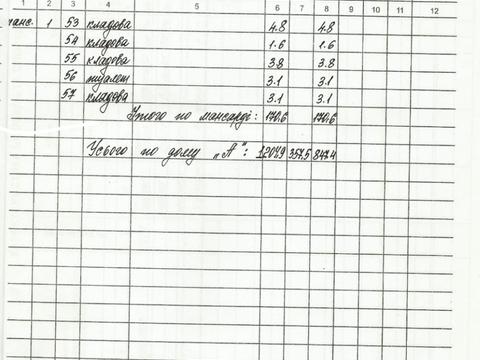 1 2 3 4 5 6 7 8 9 10 11 12
манс. 1 53 кладова 4.8 4.8
54 кладова 1.6 1.6
55 кладова 3.8 3.8
56 туалет 3.1 3.1
57 кладова 3.1 3.1
Итого по мансарді: 170.6 170.6
Усього по дому „А": 1204.9 357.5 847.4